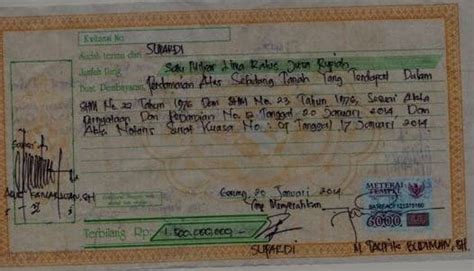 Kwitansi No.
Sudah terima dari SUPARDI
Jumlah Uang Satu Milyar Lima Ratus Juta Rupiah
Buat Pembayaran Perdamaian Atas Sebidang Tanah Yang Terdapat Dalam
SHM No. 22 Tahun 1976 Dan SHM No. 23 Tahun 1976, Sesuai Akta
Pernyataan Dan Perjanjian No. 12 Tanggal 20 Januari 2014 Dan
Akta Notaris Surat Kuasa No: 07 Tanggal 17 Januari 2014
20 Januari 2014
Yang Menyerahkan
METERAI
TEMPEL
6000
Terbilang Rp. 1.500.000.000,-
SUPARDI
M. TAUFIK BUDIMAN, SH